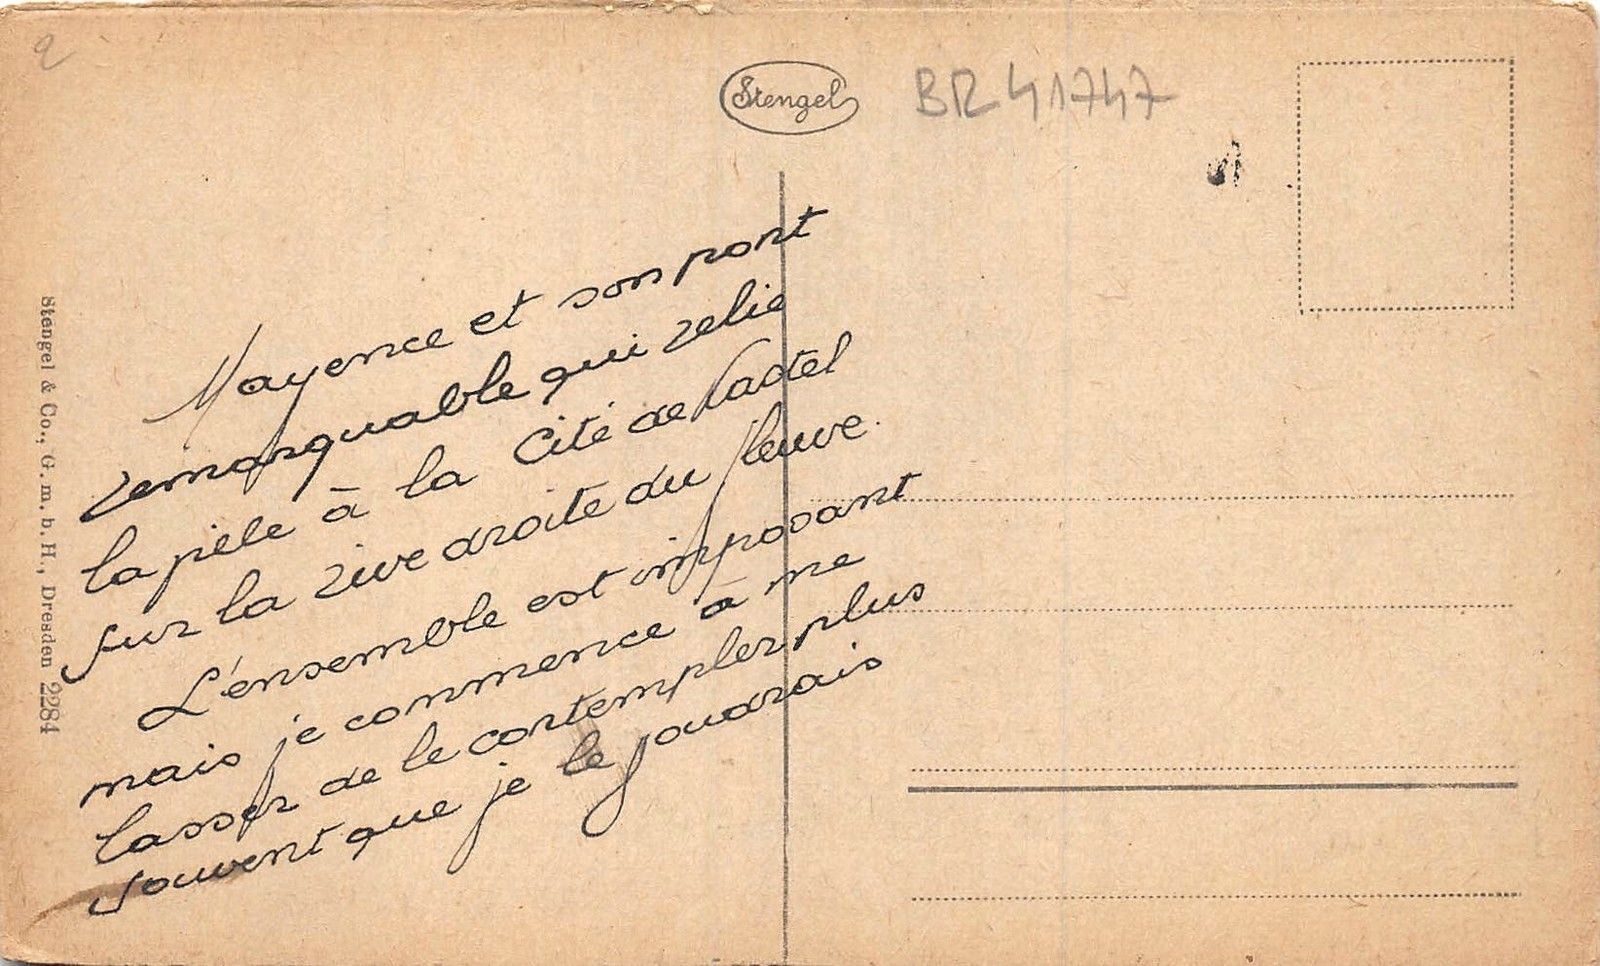 2
Stengel
BR 41747
Mayence et son pont
remarquable qui relie
la pièle à la Cité de Kastel
sur la rive droite du fleuve.
L'ensemble est imposant
mais je commence à me
lasser de le contempler plus
souvent que je le voudrais
Stengel & Co., G. m. b. H., Dresden 2284